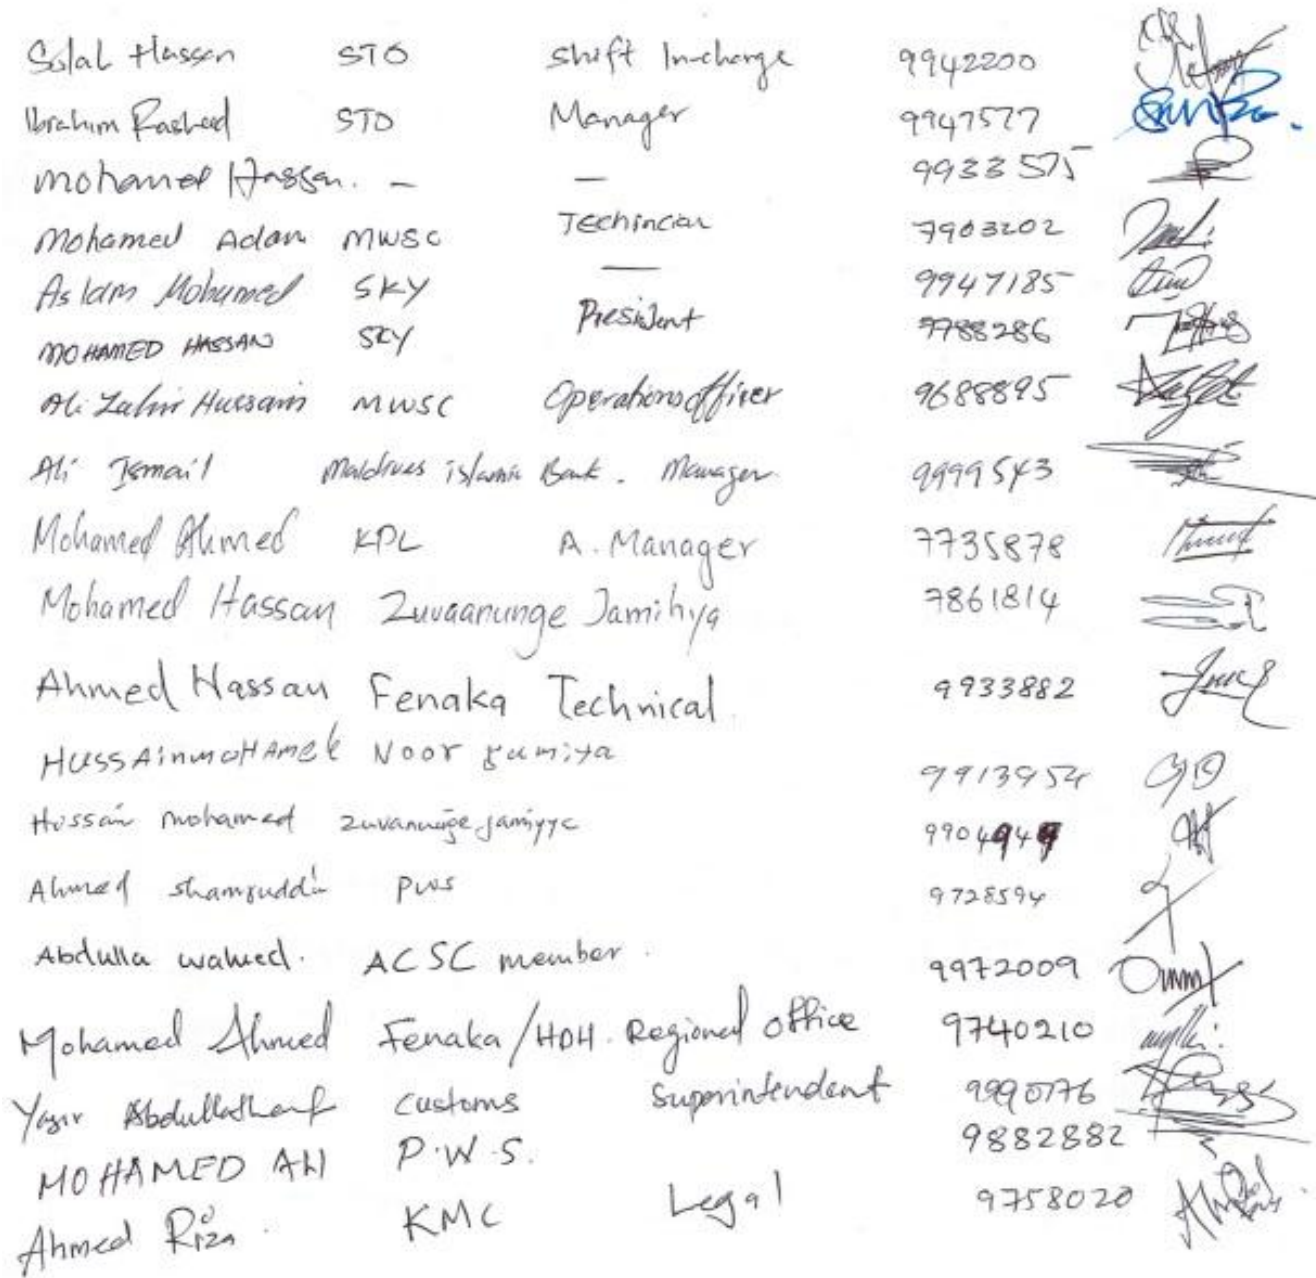 Salah Hassan STO Shift In-charge 9942200
Ibrahim Rasheed STO Manager 9947577
Mohamed Hassan. - - 9933575
Mohamed Adam MWSC Techincian 7903202
Aslam Mohamed SKY — 9947185
MOHAMED HASSAN SKY President 7788286
Ali Zahir Hussain MWSC Operations officer 9688895
Ali Ismail Maldives islamic Bank. Manager 9999543
Mohamed Ahmed KPL A. Manager 7735878
Mohamed Hassan Zuvaanunge Jamihya 7861814
Ahmed Hassan Fenaka Technical 9933882
HussAinmoHAmed Noor 9913954
Hussain mohamed zuvanunge jamiyya
Ahmed shamsuddin PWS 9728594
Abdulla waheed. ACSC member. 9972009
Mohamed Ahmed Fenaka/HDH. Regional office 9740210
Yasir Customs Superintendent 9990776
MOHAMED Ali P.W.S. 9882882
Ahmed Riza. KMC Legal 9758020